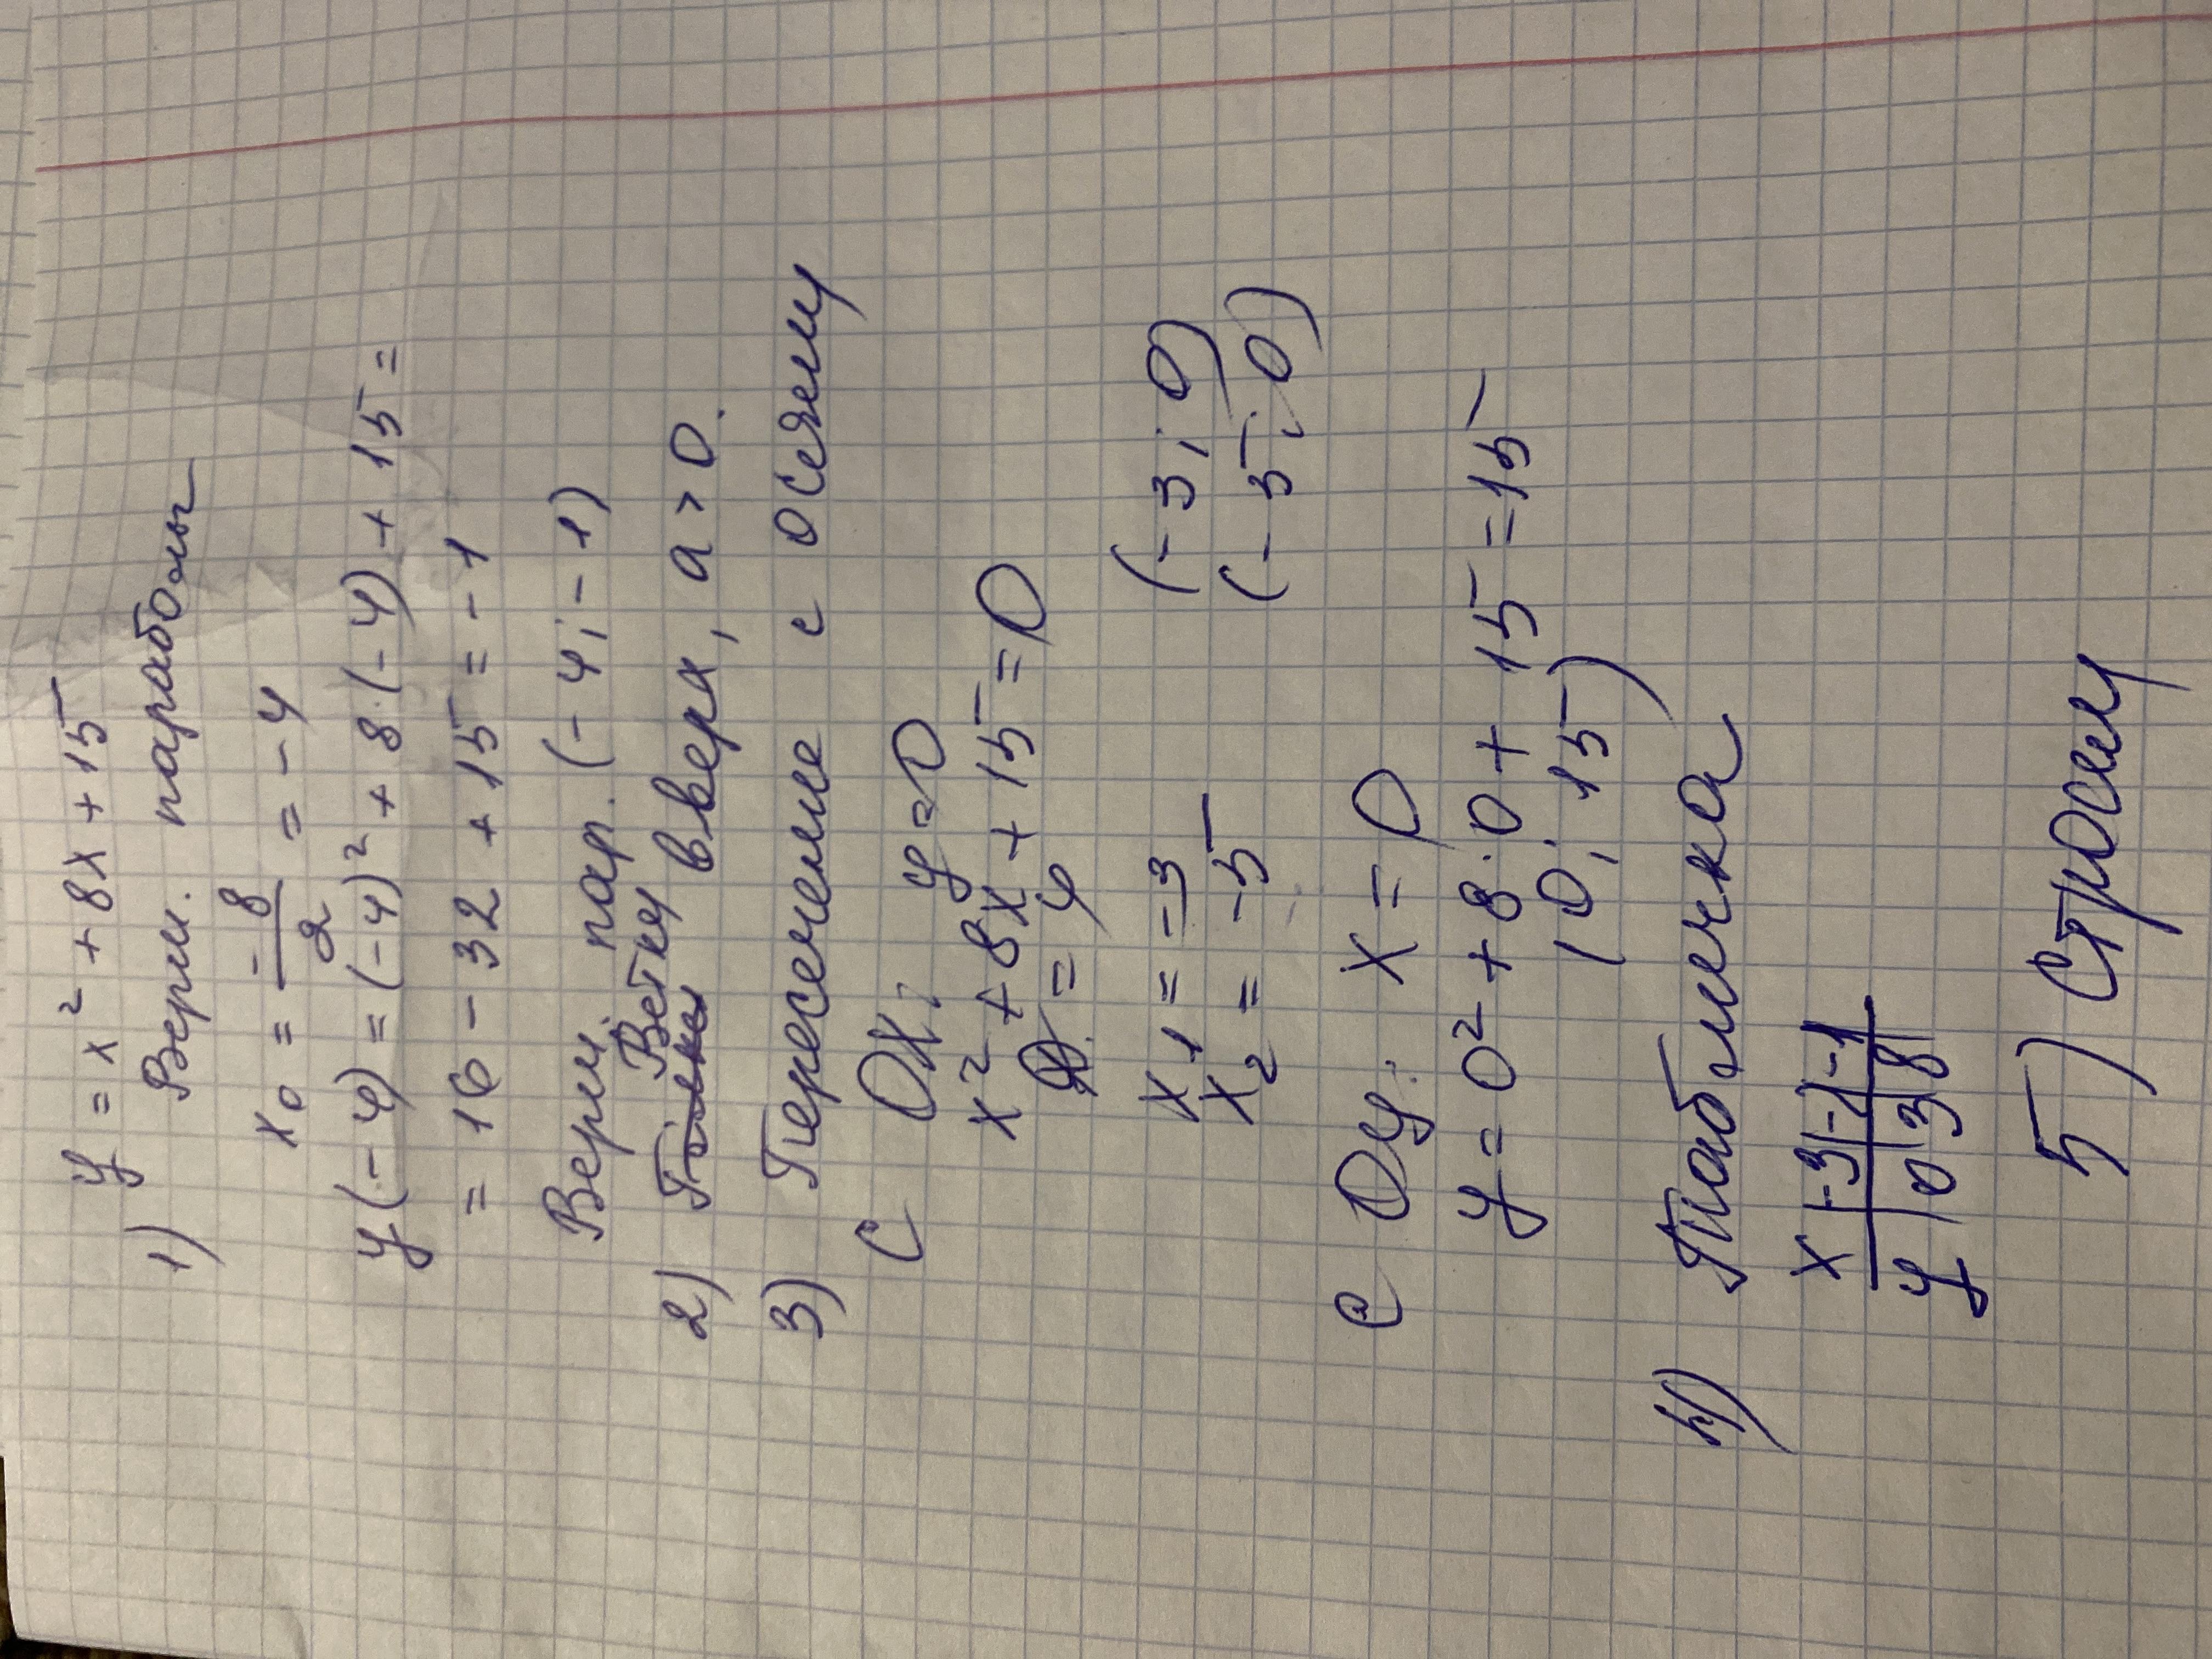 y = x² + 8x + 15
1) Верш. параболы
x₀ = -8/2 = -4
y(-4) = (-4)² + 8·(-4) + 15 =
= 16 - 32 + 15 = -1
Верш. пар. (-4; -1)
2) Ветки вверх, a > 0.
3) Пересечение с осями
С Ox: y=0
x² + 8x + 15 = 0
D = 4
x₁ = -3 (-3; 0)
x₂ = -5 (-5; 0)
С Oy: x = 0
y = 0² + 8·0 + 15 = 15
(0; 15)
4) Табличка
x | -3 | -2 | -1
y | 0 | 3 | 8
5) Строим